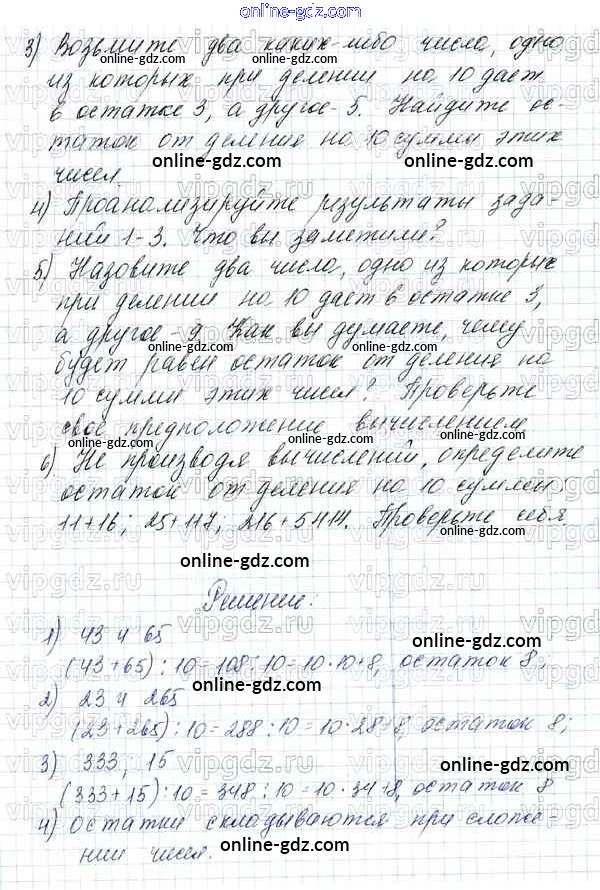 online-gdz.com
3) Возьмите два каких-либо числа, одно
из которых при делении на 10 дает
в остатке 3, а другое - 5. Найдите ос-
таток от деления на 10 суммы этих
чисел.
online-gdz.com
online-gdz.com
4) Проанализируйте результаты зада-
ний 1-3. Что вы заметили?
online-gdz.com
5) Назовите два числа, одно из которых
при делении на 10 дает в остатке 3,
а другое - 9. Как вы думаете, чему
online-gdz.com
будет равен остаток от деления на
10 суммы этих чисел? Проверьте
online-gdz.com
свое предположение вычислением
online-gdz.com
6) Не производя вычислений, определите
остаток от деления на 10 суммы:
11+16; 25+117; 216+5414. Проверьте себя
online-gdz.com
online-gdz.com
Решение:
1) 43 и 65
online-gdz.com
(43+65):10=108:10=10·10+8, остаток 8;
2) 23 и 265
online-gdz.com
(23+265):10=288:10=10·28+8, остаток 8;
3) 333; 15
online-gdz.com
(333+15):10=348:10=10·34+8, остаток 8
4) остатки складываются при сложе-
online-gdz.com
нии чисел.
online-gdz.com